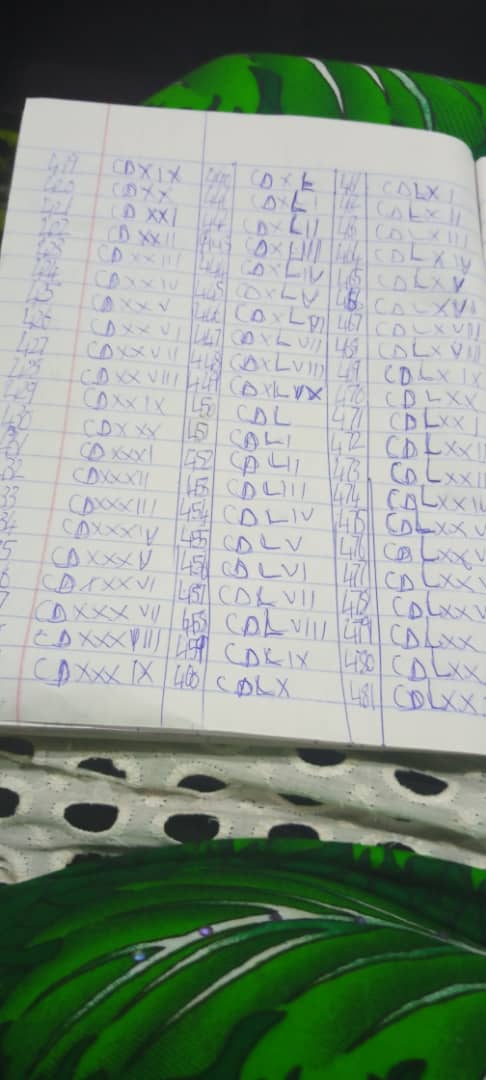 419 CDXIX 440 CDXL 461 CDLXI
420 CDXX 441 CDXLI 462 CDLXII
421 CDXXI 442 CDXLII 463 CDLXIII
422 CDXXII 443 CDXLIII 464 CDLXIV
CDXXIII 444 CDXLIV 465 CDLXV
CDXXIV 445 CDXLV 466 CDLXVI
CDXXV 446 CDXLVI 467 CDLXVII
426 CDXXVI 447 CDXLVII 468 CDLXVIII
427 CDXXVII 448 CDXLVIII 469 CDLXIX
428 CDXXVIII 449 470 CDLXX
429 CDXXIX 450 CDL 471 CDLXXI
CDXXX CDLI 472 CDLXXII
31 CDXXXI 452 CDLII 473 CDLXXII
32 CDXXXII 453 CDLIII 474 CDLXXIV
33 CDXXXIII 454 CDLIV 475 CDLXXV
34 CDXXXIV 455 CDLV 476 CDLXXV
5 CDXXXV 456 CDLVI 477 CDLXXV
6 CDXXXVI 457 CDLVII 478 CDLXXV
7 CDXXXVII 458 CDLVIII 479 CDLXX
CDXXXVIII 459 CDLIX 480 CDLXX
CDXXXIX 460 CDLX 481 CDLXX